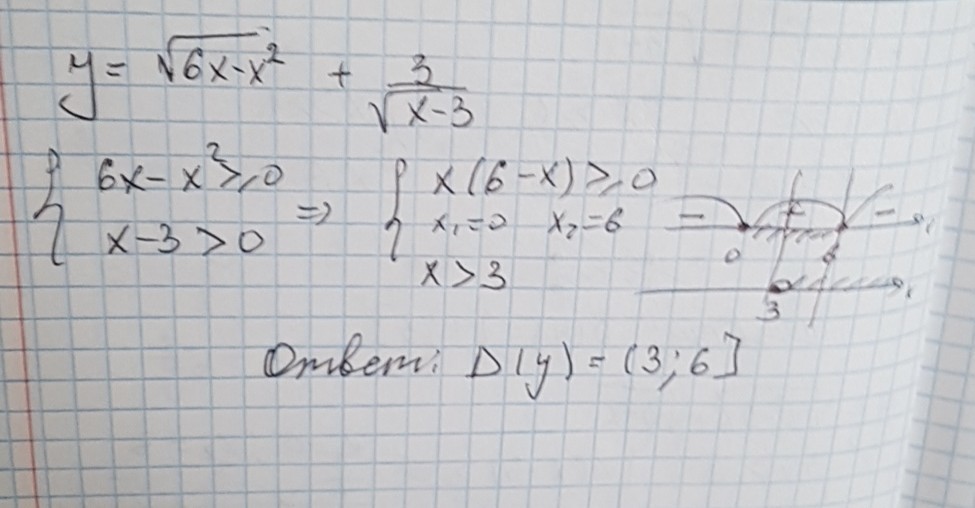 y = √(6x-x²) + 3/√(x-3)
{ 6x - x² ≥ 0 => { x(6-x) ≥ 0
x - 3 > 0 x₁=0 x₂=6
x > 3
- + - x
0 6
x
3
Ответ: D(y) = (3; 6]